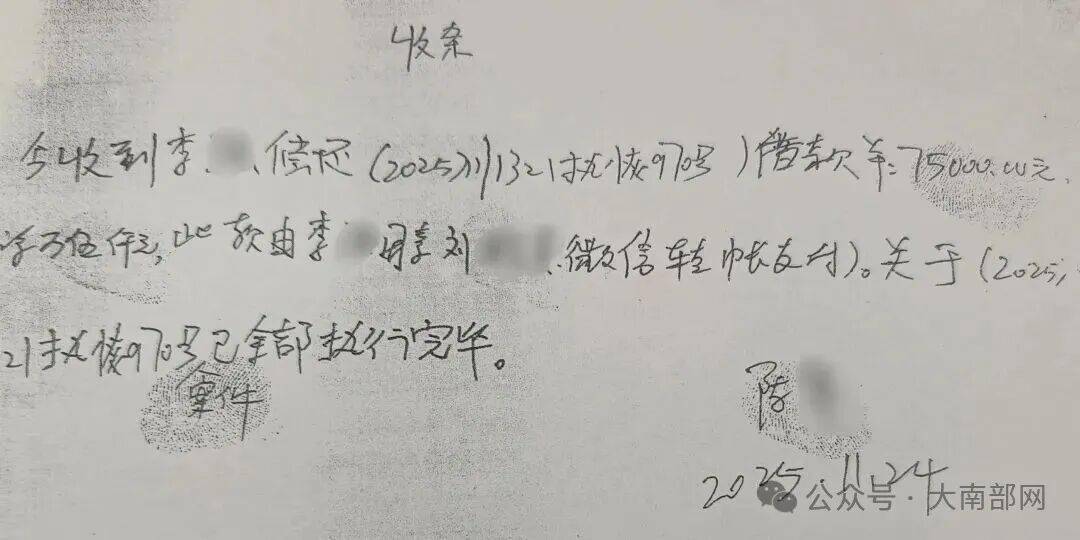 收条
今收到李 偿还(2025)川1321执恢970号)借款¥:75000.00元
万伍仟元,此款由李 妻刘 微信转帐支付)。关于(2025)
21执恢970号已全部执行完毕。
案件
陈
2025.11.24
公众号·大南部网